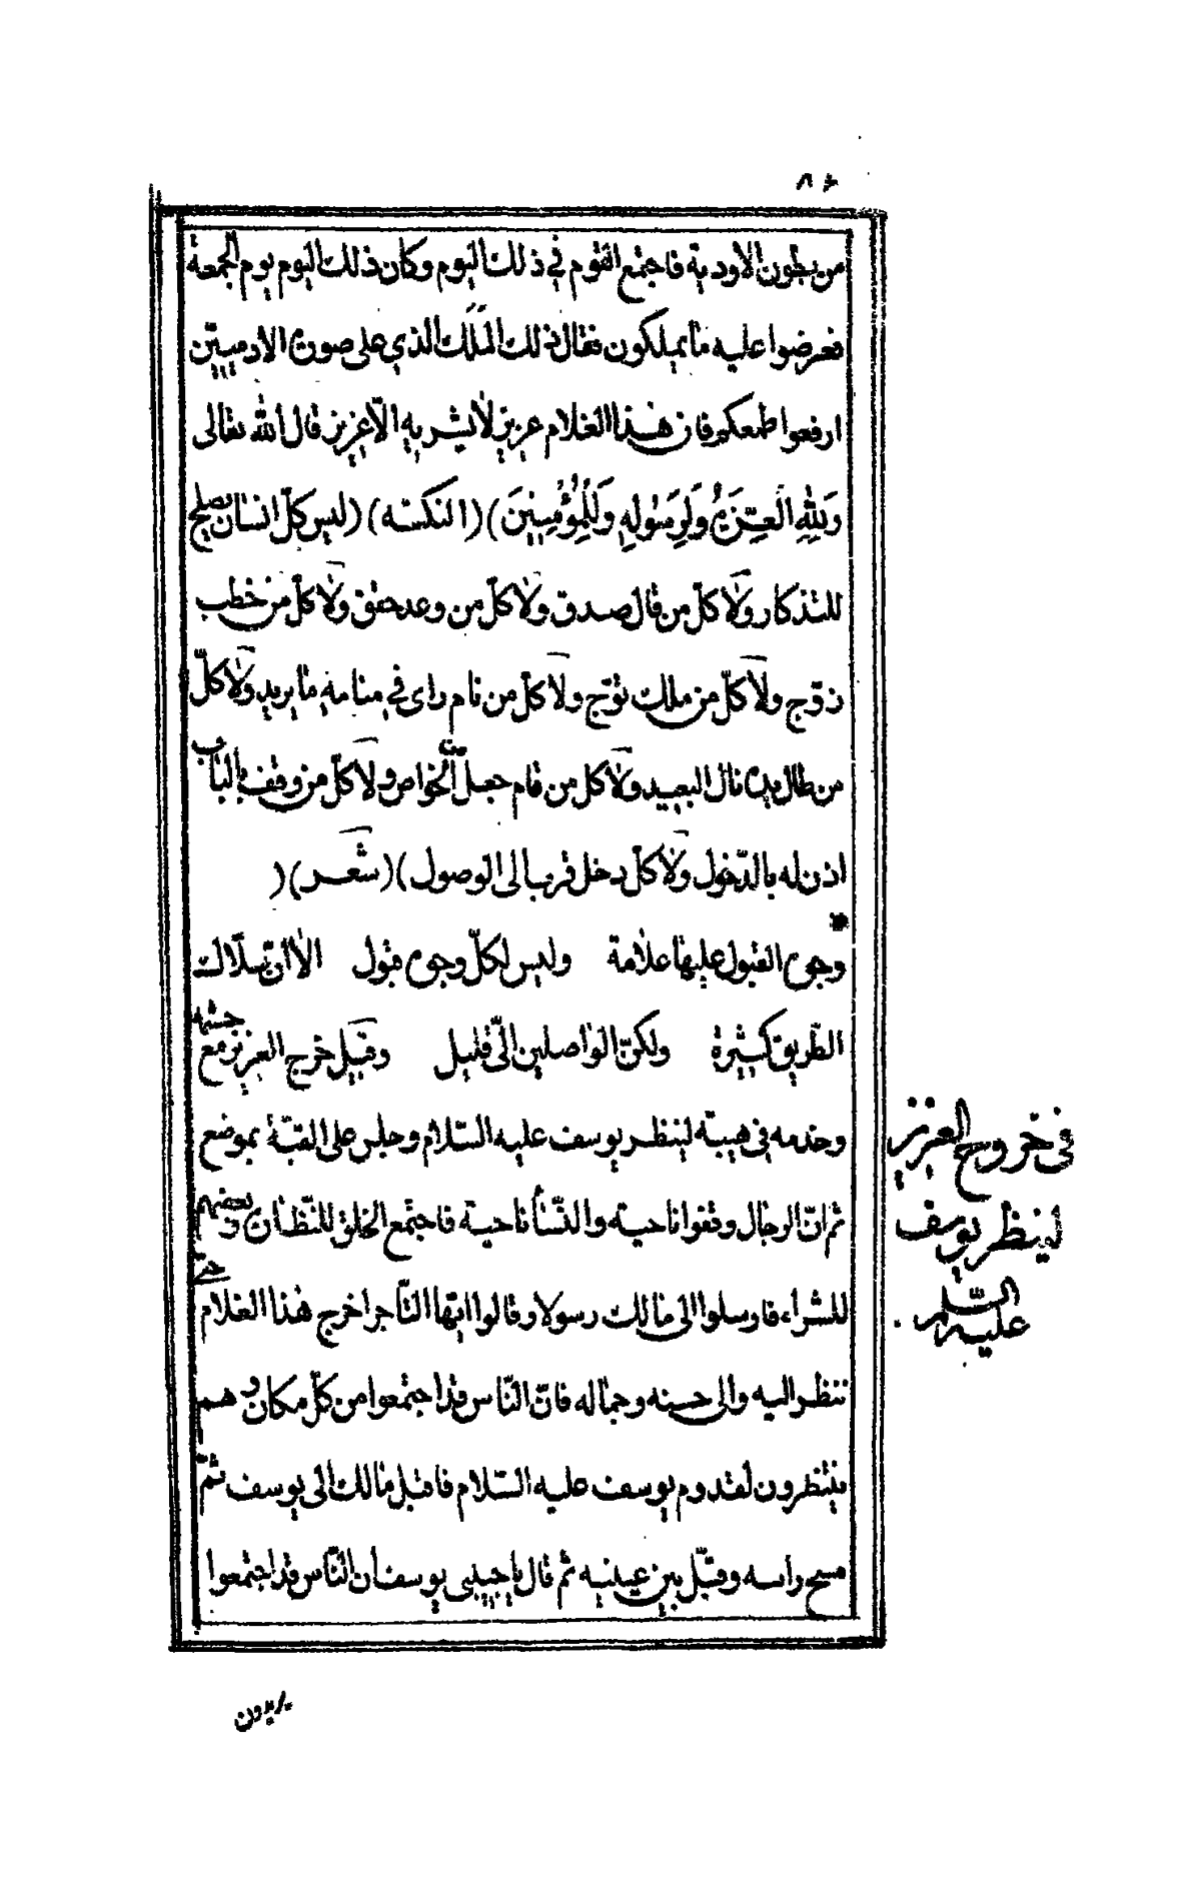 ٨٦
من بطون الاودية فاجتمع القوم في ذلك اليوم وكان ذلك اليوم يوم الجمعة
فعرضوا عليه ما يملكون فقال ذلك الملك الذي على صورة الادميين
ارفعوا طمعكم فان هذا الغلام عزيز لا يشتريه الا عزيز قال الله تعالى
وَلِلّٰهِ العِزَّةُ وَلِرَسُولِهِ وَلِلْمُؤْمِنِينَ) (النكتة) (ليس كلّ انسان يصلح
للتذكار ولا كلّ من قال صدق ولا كلّ من وعد حقق ولا كلّ من خطب
زوّج ولا كلّ من ملك توّج ولا كلّ من نام راى في منامه ما يريد ولا كلّ
من طال يده نال البعيد ولا كل من قام جعل من الخواص ولا كلّ من وقف بالباب
اذن له بالدّخول ولا كلّ دخل قرب الى الوصول) (شعر) (
وجوه القبول عليها علامة وليس لكلّ وجوه قبول الا ان سلاك
الطّريق كثيرة ولكنّ الواصلين الىّ قليل وقيل خرج العزيز مع حشمه
وخدمه في هيبته لينظر يوسف عليه السّلام وجلس على القبّة بموضع
ثم انّ الرجال وقفوا ناحيته والنّسآ ناحية فاجتمع الخلق للنّظارة وبعضهم
للشراء فارسلوا الى مالك رسولا وقالوا ايّها التّاجر اخرج هذا الغلام حتى
ننظر اليه والى حسنه وجماله فانّ النّاس قد اجتمعوا من كلّ مكان وهم
ينتظرون لقدوم يوسف عليه السّلام فاقبل مالك الى يوسف ثمّ
مسح راسه وقبّل بين عينيه ثم قال يا حبيبى يوسف ان النّاس قد اجتمعوا
في خروج العزيز
لينظر يوسف
عليه السّلم
يريدون